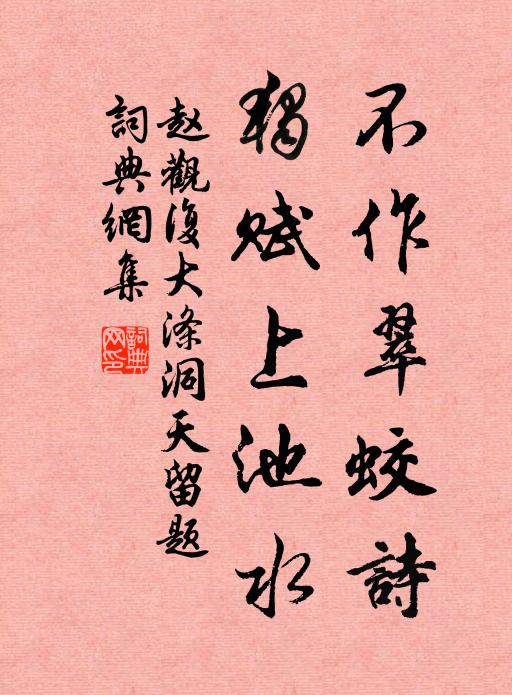 不作翠蛟詩
獨赋上池水
赵觀復大滌洞天留题
詞典網集
詞典网印